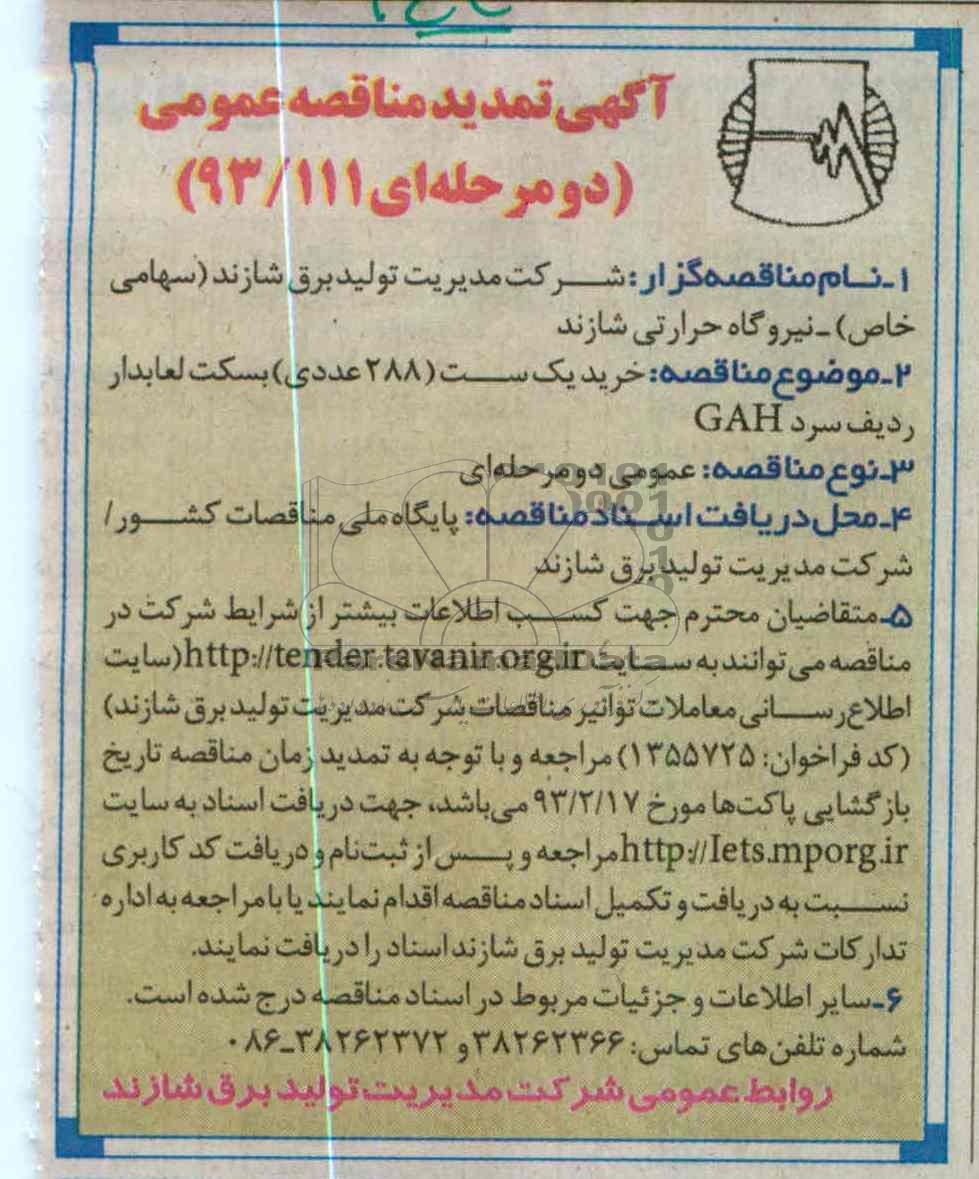 آگهی تمدید مناقصه عمومی
(دو مرحله‌ای ۹۳/۱۱۱)
۱ـ نـام مناقصه‌گزار: شرکت مدیریت تولید برق شازند (سهامی
خاص) ـ نیروگاه حرارتی شازند
۲ـ موضوع مناقصه: خرید یک ست (۲۸۸ عددی) بسکت لعابدار
ردیف سرد GAH
۳ـ نوع مناقصه: عمومی دو مرحله‌ای
۴ـ محل دریافت اسناد مناقصه: پایگاه ملی مناقصات کشور/
شرکت مدیریت تولید برق شازند
۵ـ متقاضیان محترم جهت کسب اطلاعات بیشتر از شرایط شرکت در
مناقصه می‌توانند به سایت http://tender.tavanir.org.ir (سایت
اطلاع‌رسانی معاملات توانیر مناقصات شرکت مدیریت تولید برق شازند)
(کد فراخوان: ۱۳۵۵۷۲۵) مراجعه و با توجه به تمدید زمان مناقصه تاریخ
بازگشایی پاکت‌ها مورخ ۹۳/۲/۱۷ می‌باشد، جهت دریافت اسناد به سایت
http://Iets.mporg.ir مراجعه و پس از ثبت‌نام و دریافت کد کاربری
نسبت به دریافت و تکمیل اسناد مناقصه اقدام نمایند یا با مراجعه به اداره
تدارکات شرکت مدیریت تولید برق شازند اسناد را دریافت نمایند.
۶ـ سایر اطلاعات و جزئیات مربوط در اسناد مناقصه درج شده است.
شماره تلفن‌های تماس: ۳۸۲۶۲۳۶۶ و ۳۸۲۶۲۳۷۲ـ۰۸۶
روابط عمومی شرکت مدیریت تولید برق شازند